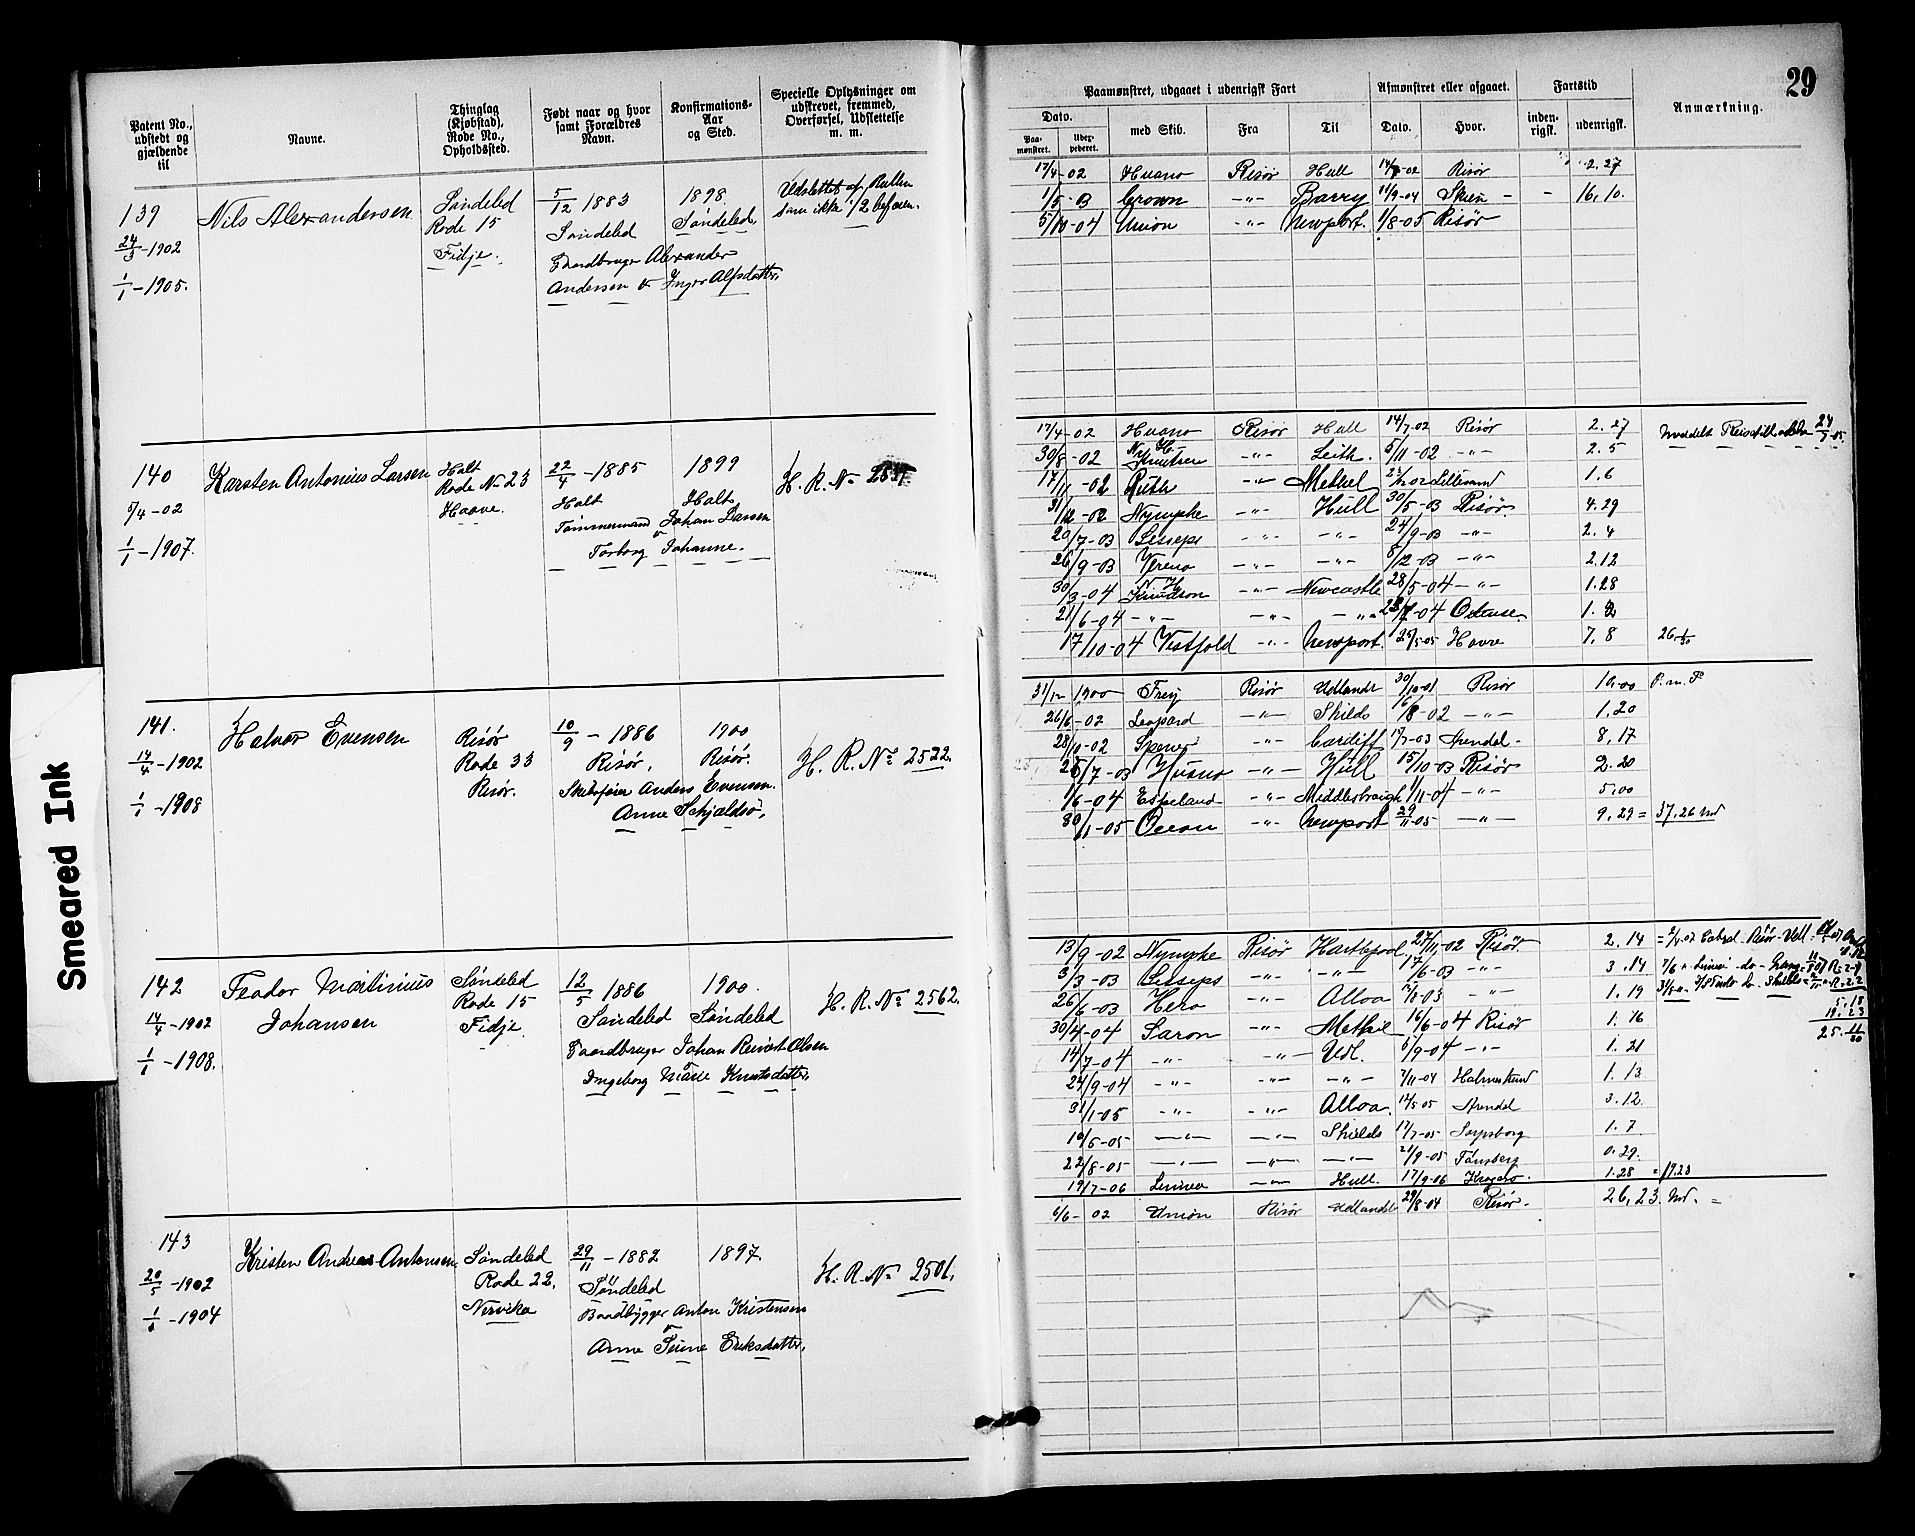 29
Smeared Ink
Patent No., udstedt og gjældende til
Navne.
Thinglag (Kjøbstad), Rode No., Opholdssted.
Født naar og hvor samt Forældres Navn.
Konfirmations-Aar og Sted.
Specielle Oplysninger om udskrevet, fremmed, Overførsel, Udslettelse m. m.
Paamønstret, udgaaet i udenrigsk Fart
Afmønstret eller afgaaet.
Fartstid
Anmærkning.
Dato.
Paamønstret.
med Skib.
Fra
Til
Dato.
Hvor.
indenrigsk.
udenrigsk.
139
24/3-1902
1/1-1905.
Nils Alexandersen
Søndeled
Rode 15
Fidje.
5/12 1883
Søndeled
Gaardbruger Alexander
Andersen & Inger Alfsdatter.
1898
Søndeled.
Udslettet af Rullen
som ikke 1/2 befaren.
17/4-02 Huano Risør Hull Risør 2.27
1/5-03 Crown -„- Barry 11/9-04 Skien - - 16.10.
5/10-04 Union -„- Newport. 1/8-05 Risør
140
5/4-02
1/1-1907.
Karsten Antonius Larsen
Holt
Rode No 23
Haave.
22/4-1885
Holt
Tømmermand Johan Larsen
& Torborg Johanne.
1899
Holt
H. R. No
17/4-02 Huano Risør Hull 14/7-02 Risør 2.27
30/8-02 N. H. Knutsen -„- Leith. 5/11-02 -„- 2.5
17/11-02 Ruth -„- Methel Lillesand 1.6
31/12-02 Nymphe -„- Hull 30/5-03 Risør. 4.29
20/7-03 Lesseps -„- -„- 24/9-03 -„- 2.4
26/9-03 Verena -„- -„- 8/12-03 -„- 2.12
30/3-04 N. H. Knudson -„- Newcastle 28/5-04 -„- 1.28
21/6-04 -„- -„- -„- Odense.
17/10-04 Vestfold -„- Newport. 25/5-05 Haave 7.8
141.
14/4-1902
1/1-1908
Halvor Evensen
Risør
Rode 33
Risør.
10/9-1886
Risør.
Skibsfører Anders Evensen.
Anne Schjeldsø.
1900
Risør.
H. R. No 2522.
31/12 1900 Frey Risør Udlandt 30/10-01 Risør 10.00 P. m. P
26/6-02 Leopard -„- Shilds -„- 1.20
28/10-02 -„- Cardiff 17/7-03 Arendal. 8.17
Huano -„- Hull 15/10-03 Risør 2.20
1/6-04 Espeland -„- Middlesbraigh 1/11-04 -„- 5.00
30/1-05 Ocean -„- Newport 29/11-05 -„- 9.29 = 37.26 Md
142
14/4-1902
1/1-1908.
Feodor Martinius
Johansen
Søndeled
Rode 15
Fidje
12/5 1886
Søndeled
Gaardbruger Johan Reinert Olsen
& Ingeborg Marie Knutsdatter.
1900.
Søndeled
H. R. No 2562.
13/9-02 Nymphe Risør Hartlepool 27/11-02 Risør 2.14
3/3-03 Lesseps -„- -„- 17/6-03 -„- 3.14
26/6-03 Hero -„- Alloa -„- 1.19
30/4-04 Saron -„- Methil 16/6-04 Risør 1.16
14/7-04 -„- -„- Udl. 5/9-04 -„- 1.21
24/9-04 -„- -„- -„- 7/11-04 Halmestad 1.13
31/1-05 -„- -„- Alloa. 12/5-05 Arendal 3.12.
10/6-05 -„- -„- Shields 17/7-05 Sarpsborg 1.7
22/8-05 -„- -„- -„- 21/9-05 Tønsberg 0.29.
19/7-06 Linnea -„- Hull. 17/9-06 Kragerø. 1.28 = 19.23
143
20/5-1902
1/1-1904
Kristen Andreas Antonsen.
Søndeled
Rode 22.
Nervika
29/11-1882
Søndeled
Baadbygger Anton Kristensen
&
Anne Serine Eriksdatter.
1897
H. R. No 2501.
6/6-02 Union Risør Udlandet 29/8-04 Risør. 26.23. Md. =